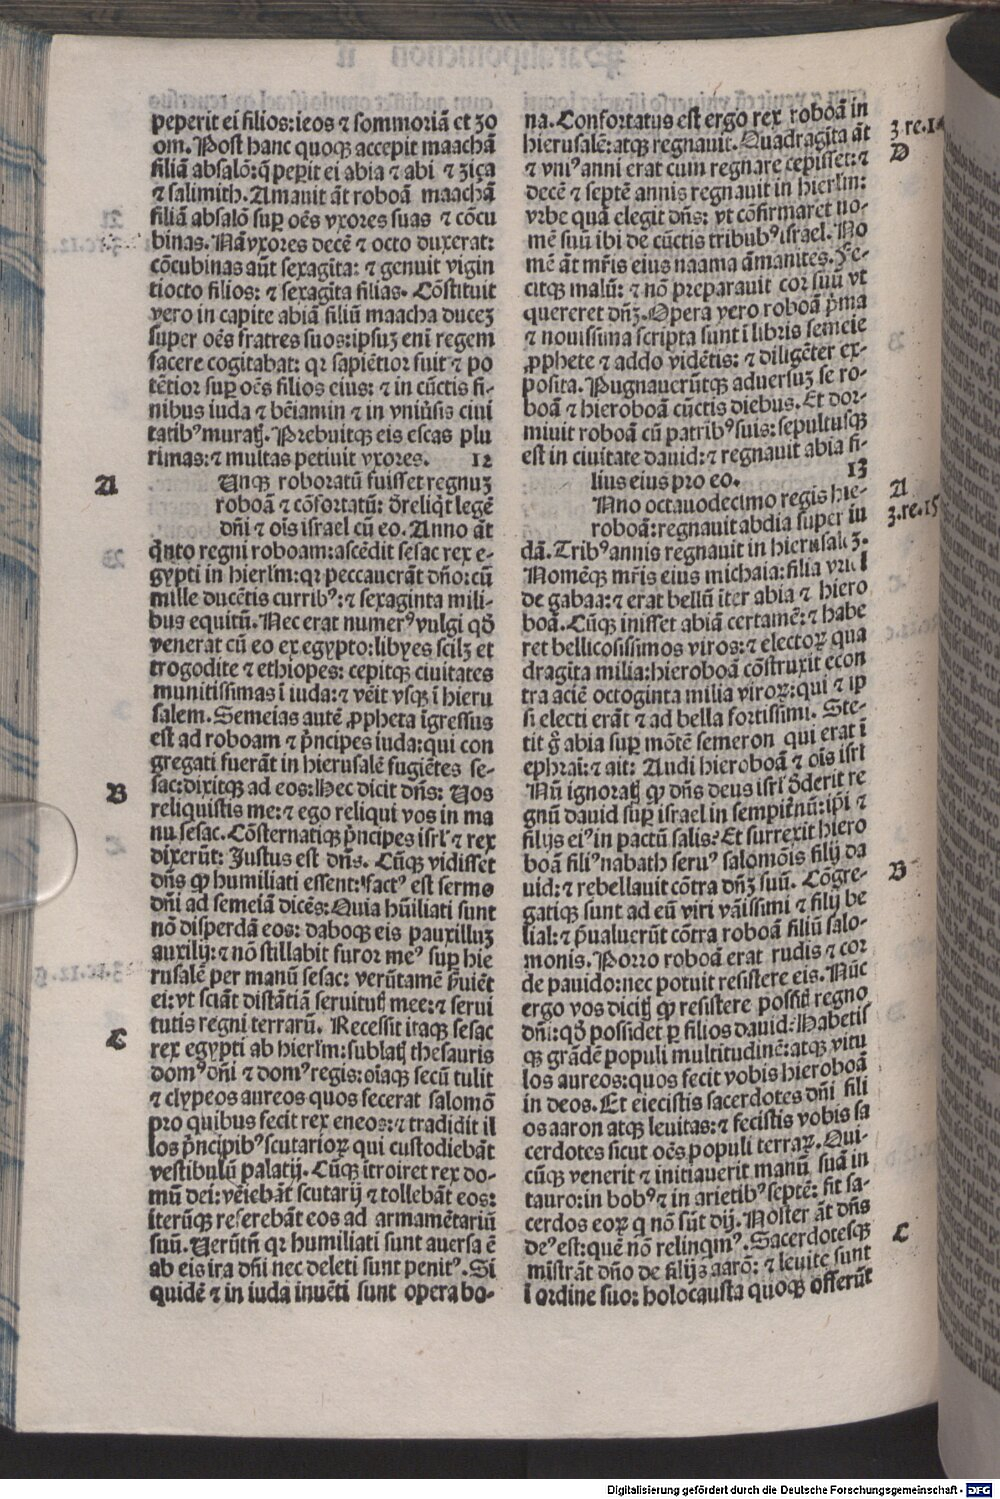 peperit ei filios: ieos ⁊ sommoriã et zo
om. Post hanc quoqꝫ accepit maachã
filiã absalõ: q̃ peꝑit ei abia ⁊ abi ⁊ ziça
⁊ salimith. Amauit aũt roboã maachã
filiã absalõ suꝑ oẽs vxores suas ⁊ cõcu
binas. Nã vxores decẽ ⁊ octo duxerat:
cõcubinas aũt sexagĩta: ⁊ genuit vigin
tiocto filios: ⁊ sexagĩta filias. Cõstituit
vero in capite abiã filiũ maacha ducez
super oẽs fratres suos: ipsuz enĩ regem
facere cogitabat: qꝛ sapiẽtior fuit ⁊ po
tẽtior suꝑ oẽs filios eius: ⁊ in cũctis fi-
nibus iuda ⁊ bẽiamin ⁊ in vniũsis ciui
tatibꝰ muratꝭ. Prebuitqꝫ eis escas plu
rimas: ⁊ multas petiuit vxores. 12
A
Unqꝫ roboratũ fuisset regnuz
roboã ⁊ cõfortatũ: d̃reliq̃t legẽ
dñi ⁊ oĩs israel cũ eo. Anno ãt
q̃nto regni roboam: ascẽdit sesac rex e-
gypti in hierlm̃: qꝛ peccauerãt dño: cũ
mille ducẽtis curribꝰ: ⁊ sexaginta mili-
bus equitũ. Nec erat numerꝰ vulgi qð
venerat cũ eo ex egypto: libyes scilz et
trogodite ⁊ ethiopes: cepitqꝫ ciuitates
munitissimas ĩ iuda: ⁊ vẽit vsqꝫ ĩ hieru
salem. Semeias autẽ ꝓpheta ĩgressus
est ad roboam ⁊ p̃ncipes iuda: qui con
gregati fuerãt in hierusalẽ fugiẽtes se-
B
sac: dixitqꝫ ad eos: Hec dicit dñs: Vos
reliquistis me: ⁊ ego reliqui vos in ma
nu sesac. Cõsternatiqꝫ p̃ncipes isrl̃ ⁊ rex
dixerũt: Justus est dñs. Cũqꝫ vidisset
dñs ꝙ humiliati essent: factꝰ est sermo
dñi ad semeiã dicẽs: Quia hũiliati sunt
nõ disperdã eos: daboqꝫ eis pauxilluz
auxilij: ⁊ nõ stillabit furor meꝰ suꝑ hie
rusalẽ per manũ sesac: verũtamẽ s̃uiẽt
ei: vt sciãt distãtiã seruitutꝭ mee: ⁊ serui
tutis regni terrarũ. Recessit itaqꝫ sesac
C
rex egypti ab hierlm̃: sublatꝭ thesauris
domꝰ dñi ⁊ domꝰ regis: oĩaqꝫ secũ tulit
⁊ clypeos aureos quos fecerat salomõ
pro quibus fecit rex eneos: ⁊ tradidit il
los p̃ncipibꝰ scutarioꝝ qui custodiebãt
vestibulũ palatij. Cũqꝫ ĩtroiret rex do-
mũ dei: vẽiebãt scutarij ⁊ tollebãt eos:
iterũqꝫ referebãt eos ad armamẽtariũ
suũ. Verũtñ qꝛ humiliati sunt auersa ẽ
ab eis ira dñi nec deleti sunt penitꝰ. Si
quidẽ ⁊ in iuda inuẽti sunt opera bo-
na. Confortatus est ergo rex roboã in
3 re.14
hierusalẽ: atqꝫ regnauit. Quadragĩta ãt
D
⁊ vniꝰ anni erat cum regnare cepisset: ⁊
decẽ ⁊ septẽ annis regnauit in hierlm̃:
vrbe quã elegit dñs: vt cõfirmaret no-
mẽ suũ ibi de cũctis tribubꝰ israel. No
mẽ ãt mr̃is eius naama ãmanites. Fe-
citqꝫ malũ: ⁊ nõ preparauit cor suũ vt
quereret dñz. Opera vero roboã p̃ma
⁊ nouissima scripta sunt ĩ libris semeie
ꝓphete ⁊ addo vidẽtis: ⁊ diligẽter ex-
posita. Pugnauerũtqꝫ aduersuz se ro-
boã ⁊ hieroboã cũctis diebus. Et dor-
miuit roboã cũ patribꝰ suis: sepultusqꝫ
est in ciuitate dauid: ⁊ regnauit abia fi-
lius eius pro eo. 13
A
Nno octauodecimo regis hie-
3.re.15
roboã: regnauit abdia super iu
dã. Tribꝰ annis regnauit in hierusalez.
Nomẽqꝫ mr̃is eius michaia: filia vriel
de gabaa: ⁊ erat bellũ ĩter abia ⁊ hiero
boã. Cũqꝫ inisset abiã certamẽ: ⁊ habe
ret bellicosissimos viros: ⁊ electoꝝ qua
dragĩta milia: hieroboã cõstruxit econ
tra aciẽ octoginta milia viroꝝ: qui ⁊ ip
si electi erãt ⁊ ad bella fortissimi. Ste-
tit g̃ abia suꝑ mõtẽ semeron qui erat ĩ
ephraĩ: ⁊ ait: Audi hieroboã ⁊ oĩs isrl̃
Nũ ignoratꝭ ꝙ dñs deus isrl̃ d̃derit re
gnũ dauid suꝑ israel in sempit̃nũ: ip̃i ⁊
filijs eiꝰ in pactũ salis? Et surrexit hiero
boã filiꝰ nabath seruꝰ salomõis filij da
B
uid: ⁊ rebellauit cõtra dñz suũ. Cõgre-
gatiqꝫ sunt ad eũ viri vãissimi ⁊ filij be
lial: ⁊ p̃ualuerũt cõtra roboã filiũ salo-
monis. Porro roboã erat rudis ⁊ cor
de pauido: nec potuit resistere eis. Nũc
ergo vos dicitꝭ ꝙ resistere possitꝭ regno
dñi: qð possidet ꝑ filios dauid: Habetis
qꝫ grãdẽ populi multitudinẽ: atqꝫ vitu
los aureos: quos fecit vobis hieroboã
in deos. Et eiecistis sacerdotes dñi fili
os aaron atqꝫ leuitas: ⁊ fecistis vobis sa
cerdotes sicut oẽs populi terraꝝ. Qui-
cũqꝫ venerit ⁊ initiauerit manũ suã in
tauro: in bobꝰ ⁊ in arietibꝰ septẽ: fit sa-
cerdos eoꝝ q nõ sũt dij. Noster ãt dñs
C
deꝰ est: quẽ nõ relinqimꝰ. Sacerdotesqꝫ
mĩstrãt dño de filijs aarõ: ⁊ leuite sunt
ĩ ordine suo: holocausta quoqꝫ offerũt
Digitalisierung gefördert durch die Deutsche Forschungsgemeinschaft - DFG